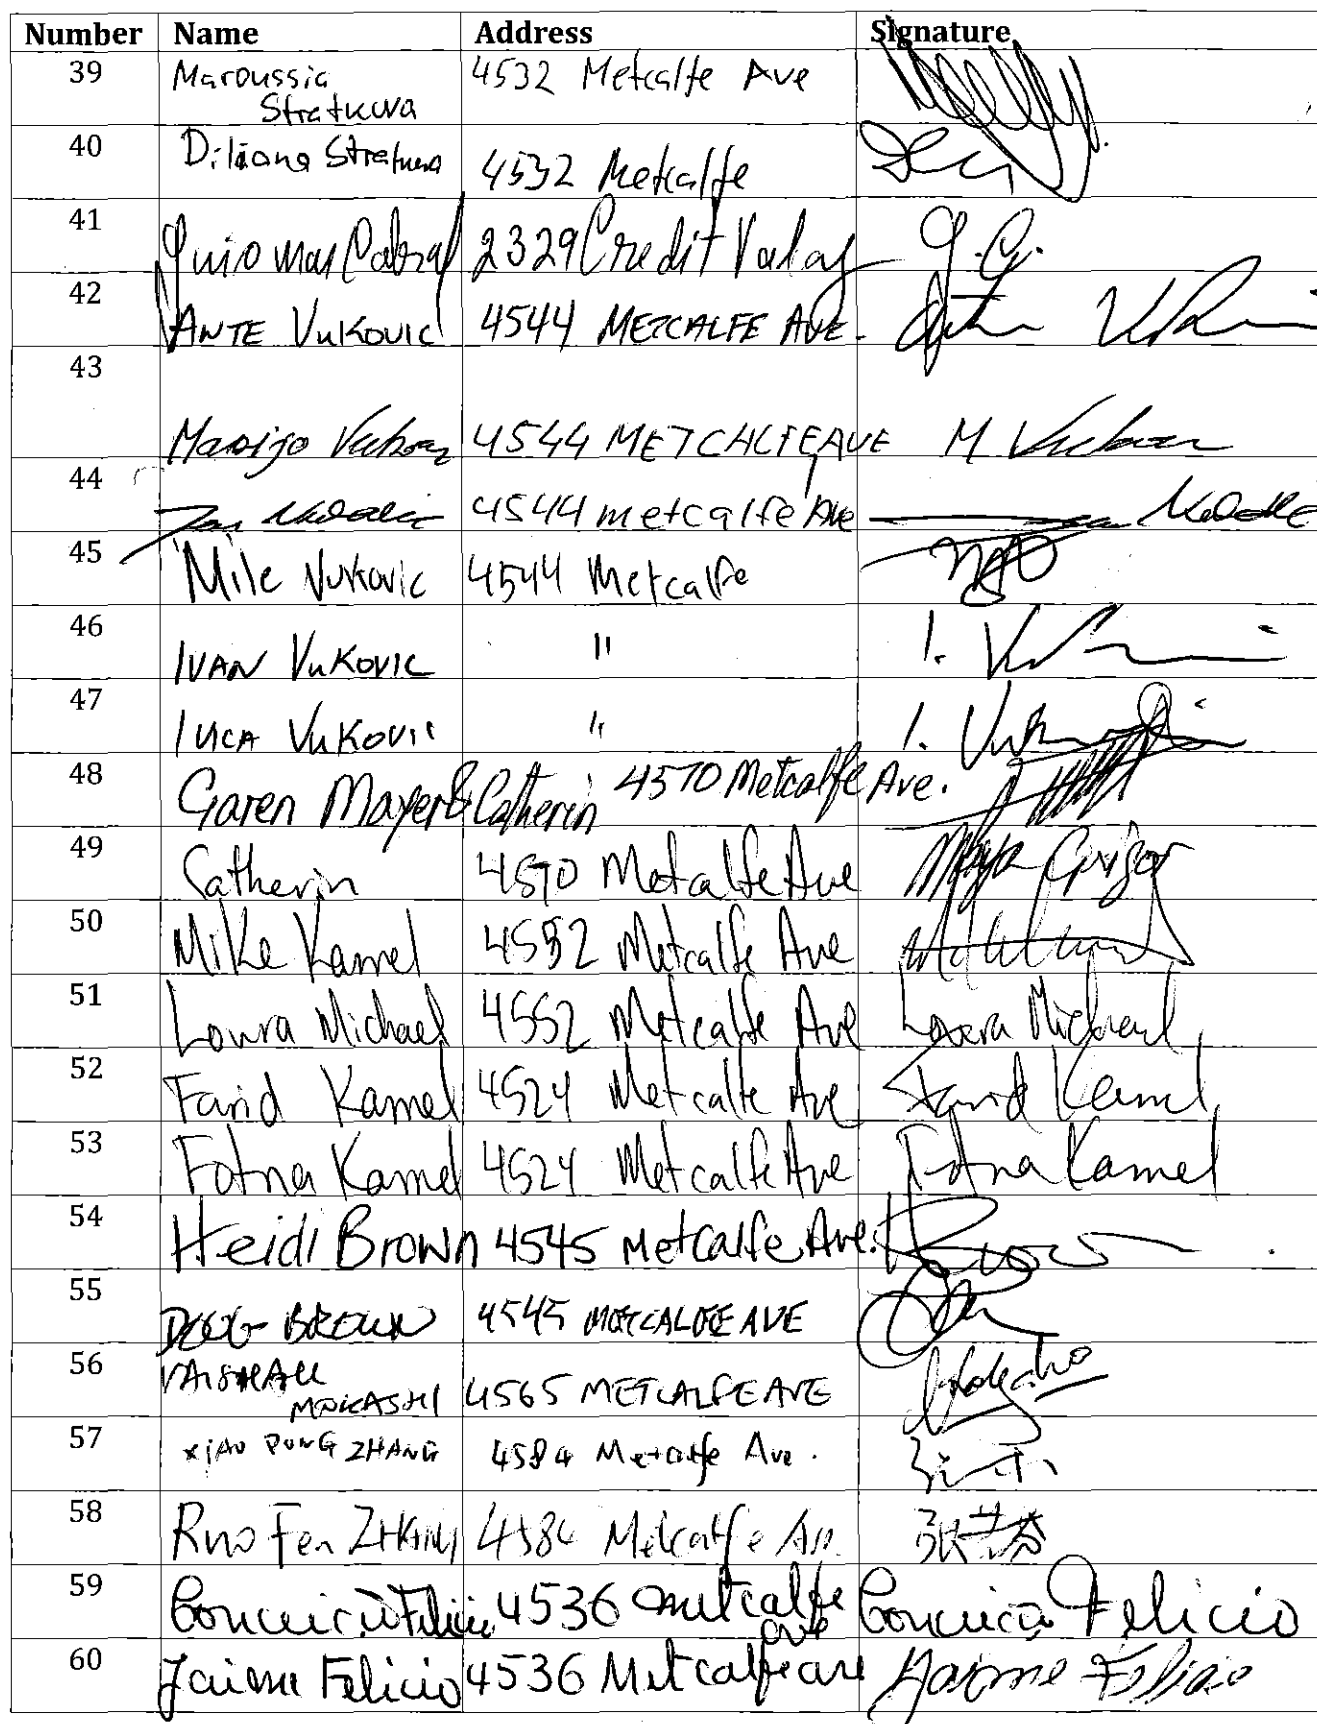 Number Name Address Signature
39 Maroussia 4532 Metcalfe Ave
Stratieva
40 Diliana 4532 Metcalfe
41 Guiomar Cabral 2329 Credit Valay G.C.
42 ANTE VUKOVIC 4544 METCALFE AVE.
43
Marijo 4544 METCALFE AVE M
44
4544 metcalfe Ave
45 Mile Vukovic 4544 Metcalfe
46
IVAN VUKOVIC " I.
47
LUCA VUKOVIC " 
48 Garen Mayer & Catherin 4570 Metcalfe Ave.
49 Catherin 4570 Metcalfe Ave
50 Mike Kamel 4552 Metcalfe Ave
51 Loura Michael 4552 Metcalfe Ave Loura Michael
52 Farid Kamel 4524 Metcalfe Ave Farid Kamel
53 Fotna Kamel 4524 Metcalfe Ave Fotna Kamel
54 Heidi Brown 4545 Metcalfe Ave.
55 DOUG BROWN 4545 METCALFE AVE
56 VAISHALI
MOKASHI 4565 METCALFE AVE
57 XIAO ZHANG 4584 Metcalfe Ave.
58 Fen 4584 Metcalfe 张
59 Felicio 4536 Metcalfe Felicio
ave
60 Jaime Felicio 4536 Metcalfe ave Jaime Felicio